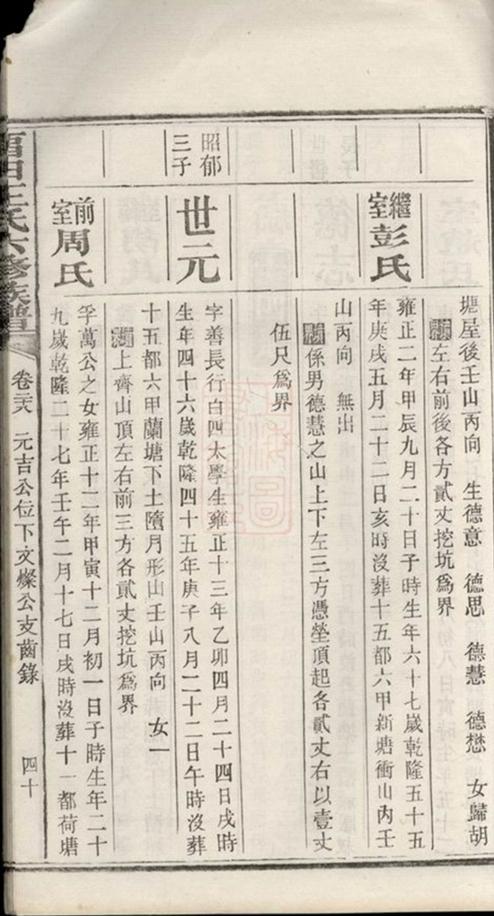 塘屋後壬山丙向 生德意 德思 德慧 德懋 女歸胡
左右前後各方貳丈挖坑爲界
繼室彭氏
雍正二年甲辰九月二十日子時生年六十七歲乾隆五十五
年庚戌五月二十二日亥時沒葬十五都六甲新塘衝山內壬
山丙向 無出
係男德慧之山上下左三方憑塋頂起各貳丈右以壹丈
伍尺爲界
昭郁三子
世元
字善長行白四太學生雍正十三年乙卯四月二十四日戌時
生年四十六歲乾隆四十五年庚子八月二十二日午時沒葬
十五都六甲蘭塘下土墮月形山壬山丙向 女一
上齊山頂左右前三方各貳丈挖坑爲界
前室周氏
孚萬公之女雍正十二年甲寅十二月初一日子時生年二十
九歲乾隆二十七年壬午二月十七日戌時沒葬十一都荷塘
王氏六修族譜 卷二十八 元吉公位下文燦公支齒錄 四十